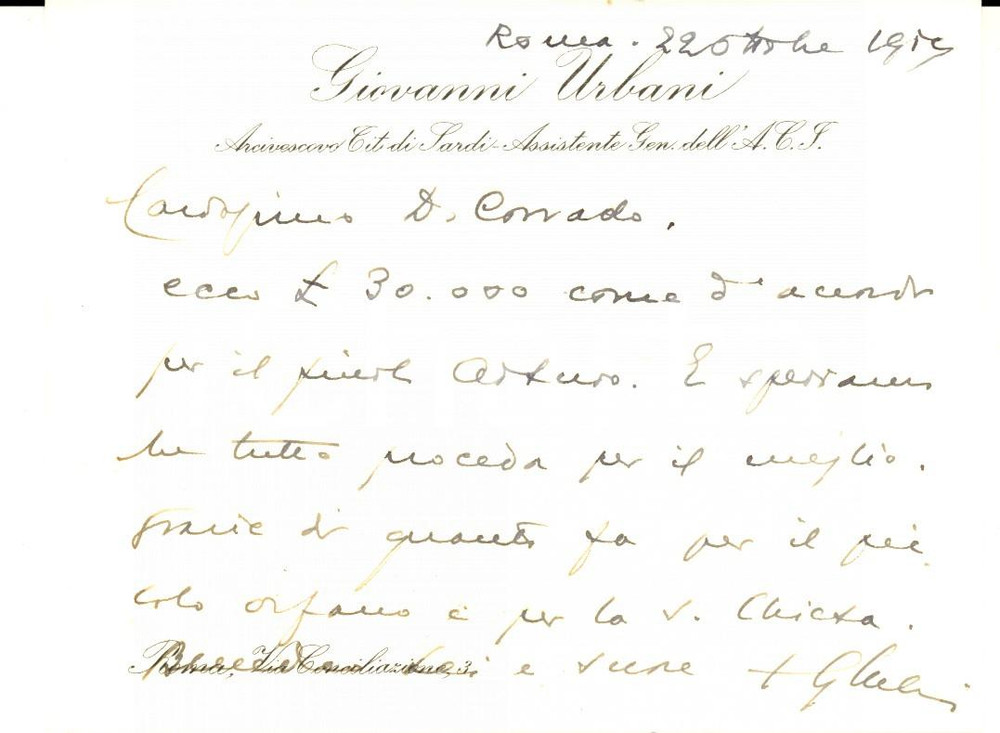 Roma. 22 Ottobre 19
Giovanni Urbani
Arcivescovo Tit. di Sardi - Assistente Gen. dell'A.C.I.
Carissimo D. Corrado,
ecco £ 30.000 come d'accordo
per il piccolo Arturo. E speriamo
che tutto proceda per il meglio.
Grazie di quanto fa per il pic
colo orfano e per la S. Chiesa.
Roma, Via Conciliazione, 3
e +GUrbani